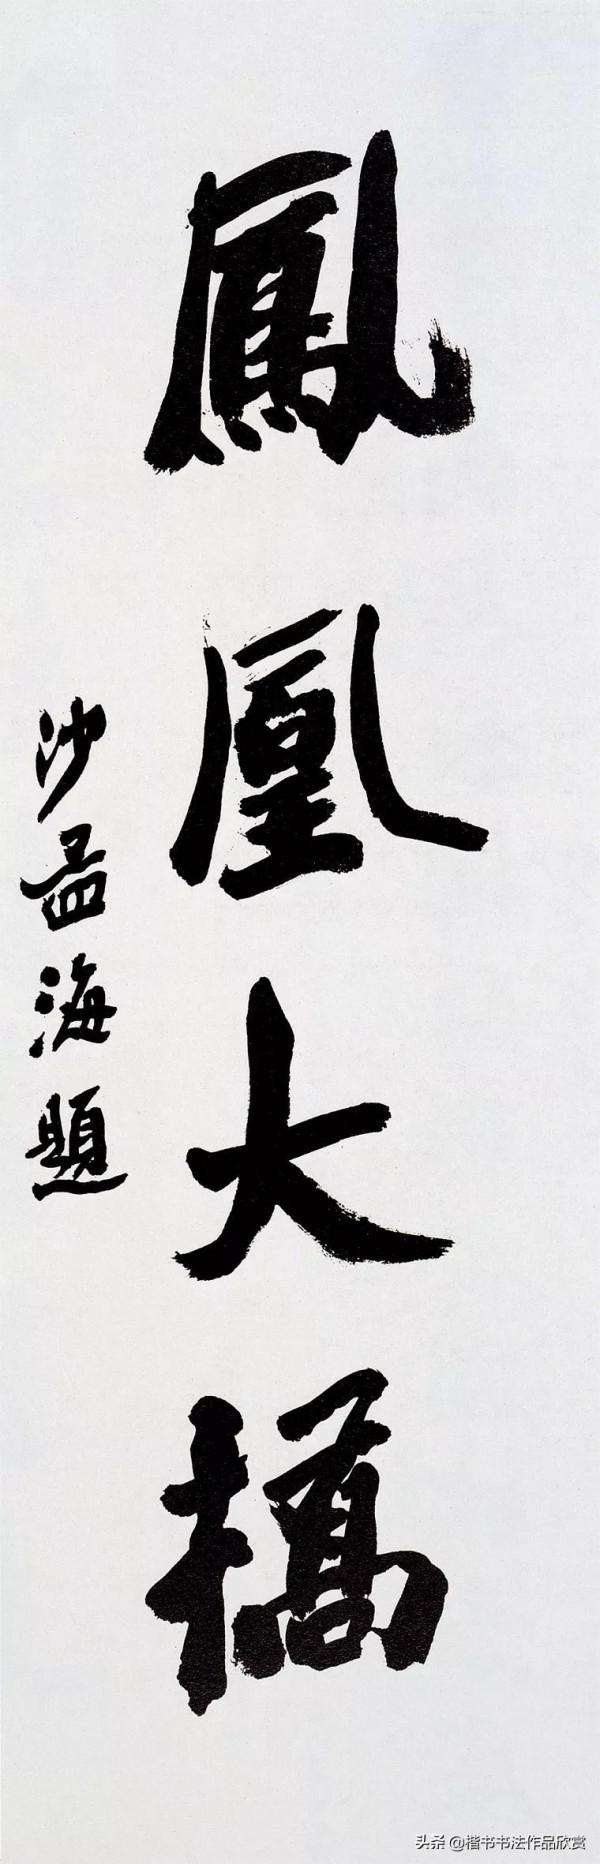 鳳凰大橋
沙孟海題
头条 @楷书书法作品欣赏